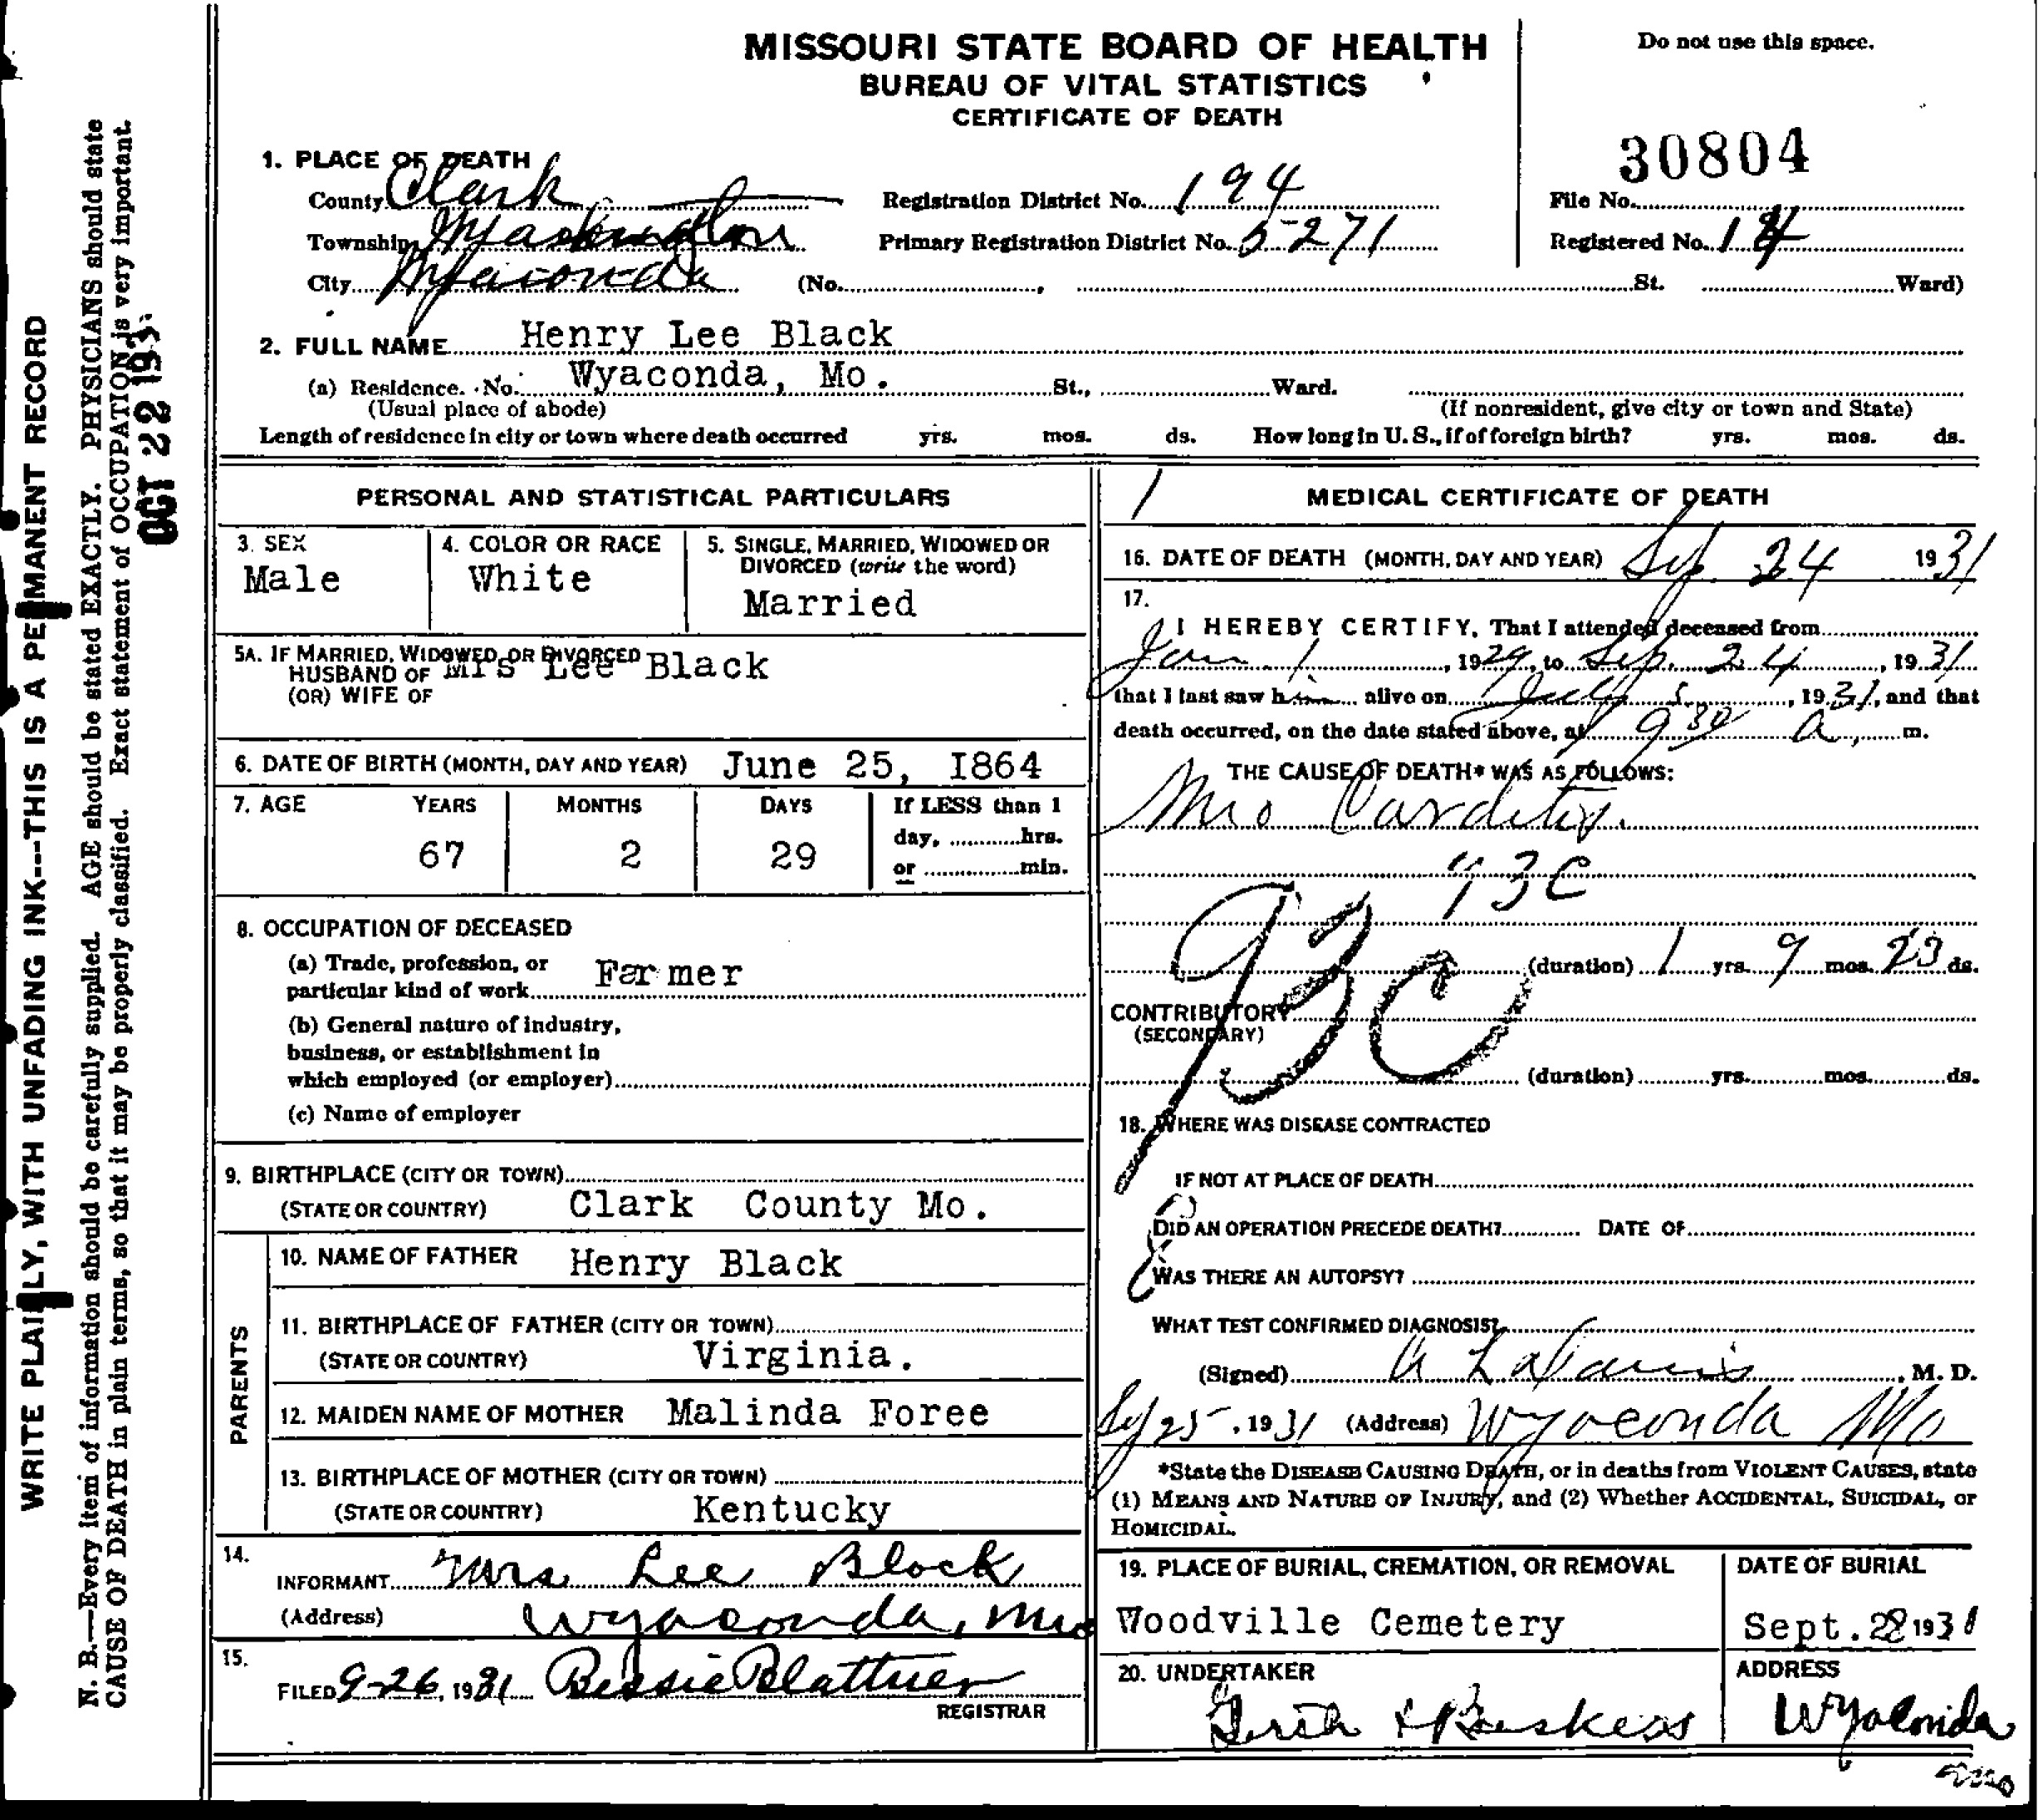 MISSOURI STATE BOARD OF HEALTH
BUREAU OF VITAL STATISTICS
CERTIFICATE OF DEATH
Do not use this space.
30804
1. PLACE OF DEATH
County Clark
Registration District No. 194
File No.
Township Washington
Primary Registration District No. 5271
Registered No. 14
City Wyaconda (No. , St. Ward)
2. FULL NAME Henry Lee Black
(a) Residence. No. Wyaconda, Mo. St., Ward.
(Usual place of abode) (If nonresident, give city or town and State)
Length of residence in city or town where death occurred yrs. mos. ds. How long in U. S., if of foreign birth? yrs. mos. ds.
PERSONAL AND STATISTICAL PARTICULARS
3. SEX
Male
4. COLOR OR RACE
White
5. SINGLE, MARRIED, WIDOWED OR
DIVORCED (write the word)
Married
5A. IF MARRIED, WIDOWED, OR DIVORCED
HUSBAND OF Mrs Lee Black
(OR) WIFE OF
6. DATE OF BIRTH (MONTH, DAY AND YEAR) June 25, I864
7. AGE YEARS MONTHS DAYS If LESS than 1
day, hrs.
67 2 29
or min.
8. OCCUPATION OF DECEASED
(a) Trade, profession, or
particular kind of work Farmer
(b) General nature of industry,
business, or establishment in
which employed (or employer)
(c) Name of employer
9. BIRTHPLACE (CITY OR TOWN)
(STATE OR COUNTRY) Clark County Mo.
PARENTS
10. NAME OF FATHER Henry Black
11. BIRTHPLACE OF FATHER (CITY OR TOWN)
(STATE OR COUNTRY) Virginia.
12. MAIDEN NAME OF MOTHER Malinda Foree
13. BIRTHPLACE OF MOTHER (CITY OR TOWN)
(STATE OR COUNTRY) Kentucky
14.
INFORMANT Mrs Lee Black
(Address) Wyaconda, Mo
15.
FILED 9-26, 1931 Bessie Blattner
REGISTRAR
MEDICAL CERTIFICATE OF DEATH
16. DATE OF DEATH (MONTH, DAY AND YEAR) Sep. 24 1931
17.
I HEREBY CERTIFY, That I attended deceased from
Jan. 1, 1929, to Sep. 24, 1931
that I last saw him alive on July 5, 1931, and that
death occurred, on the date stated above, at 9 30 a, m.
THE CAUSE OF DEATH* WAS AS FOLLOWS:
93C
93C
(duration) 1 yrs. 9 mos. 23 ds.
CONTRIBUTORY
(SECONDARY)
(duration) yrs. mos. ds.
18. WHERE WAS DISEASE CONTRACTED
IF NOT AT PLACE OF DEATH
DID AN OPERATION PRECEDE DEATH? DATE OF
WAS THERE AN AUTOPSY?
WHAT TEST CONFIRMED DIAGNOSIS?
(Signed) , M. D.
Sep 25, 1931 (Address) Wyaconda Mo
*State the DISEASE CAUSING DEATH, or in deaths from VIOLENT CAUSES, state
(1) MEANS AND NATURE OF INJURY, and (2) Whether ACCIDENTAL, SUICIDAL, or
HOMICIDAL.
19. PLACE OF BURIAL, CREMATION, OR REMOVAL
Woodville Cemetery
DATE OF BURIAL
Sept. 28 1931
20. UNDERTAKER
ADDRESS
Wyaconda
Mo
WRITE PLAINLY, WITH UNFADING INK---THIS IS A PERMANENT RECORD
N. B.—Every item of information should be carefully supplied. AGE should be stated EXACTLY. PHYSICIANS should state
CAUSE OF DEATH in plain terms, so that it may be properly classified. Exact statement of OCCUPATION is very important.
OCT 22 193